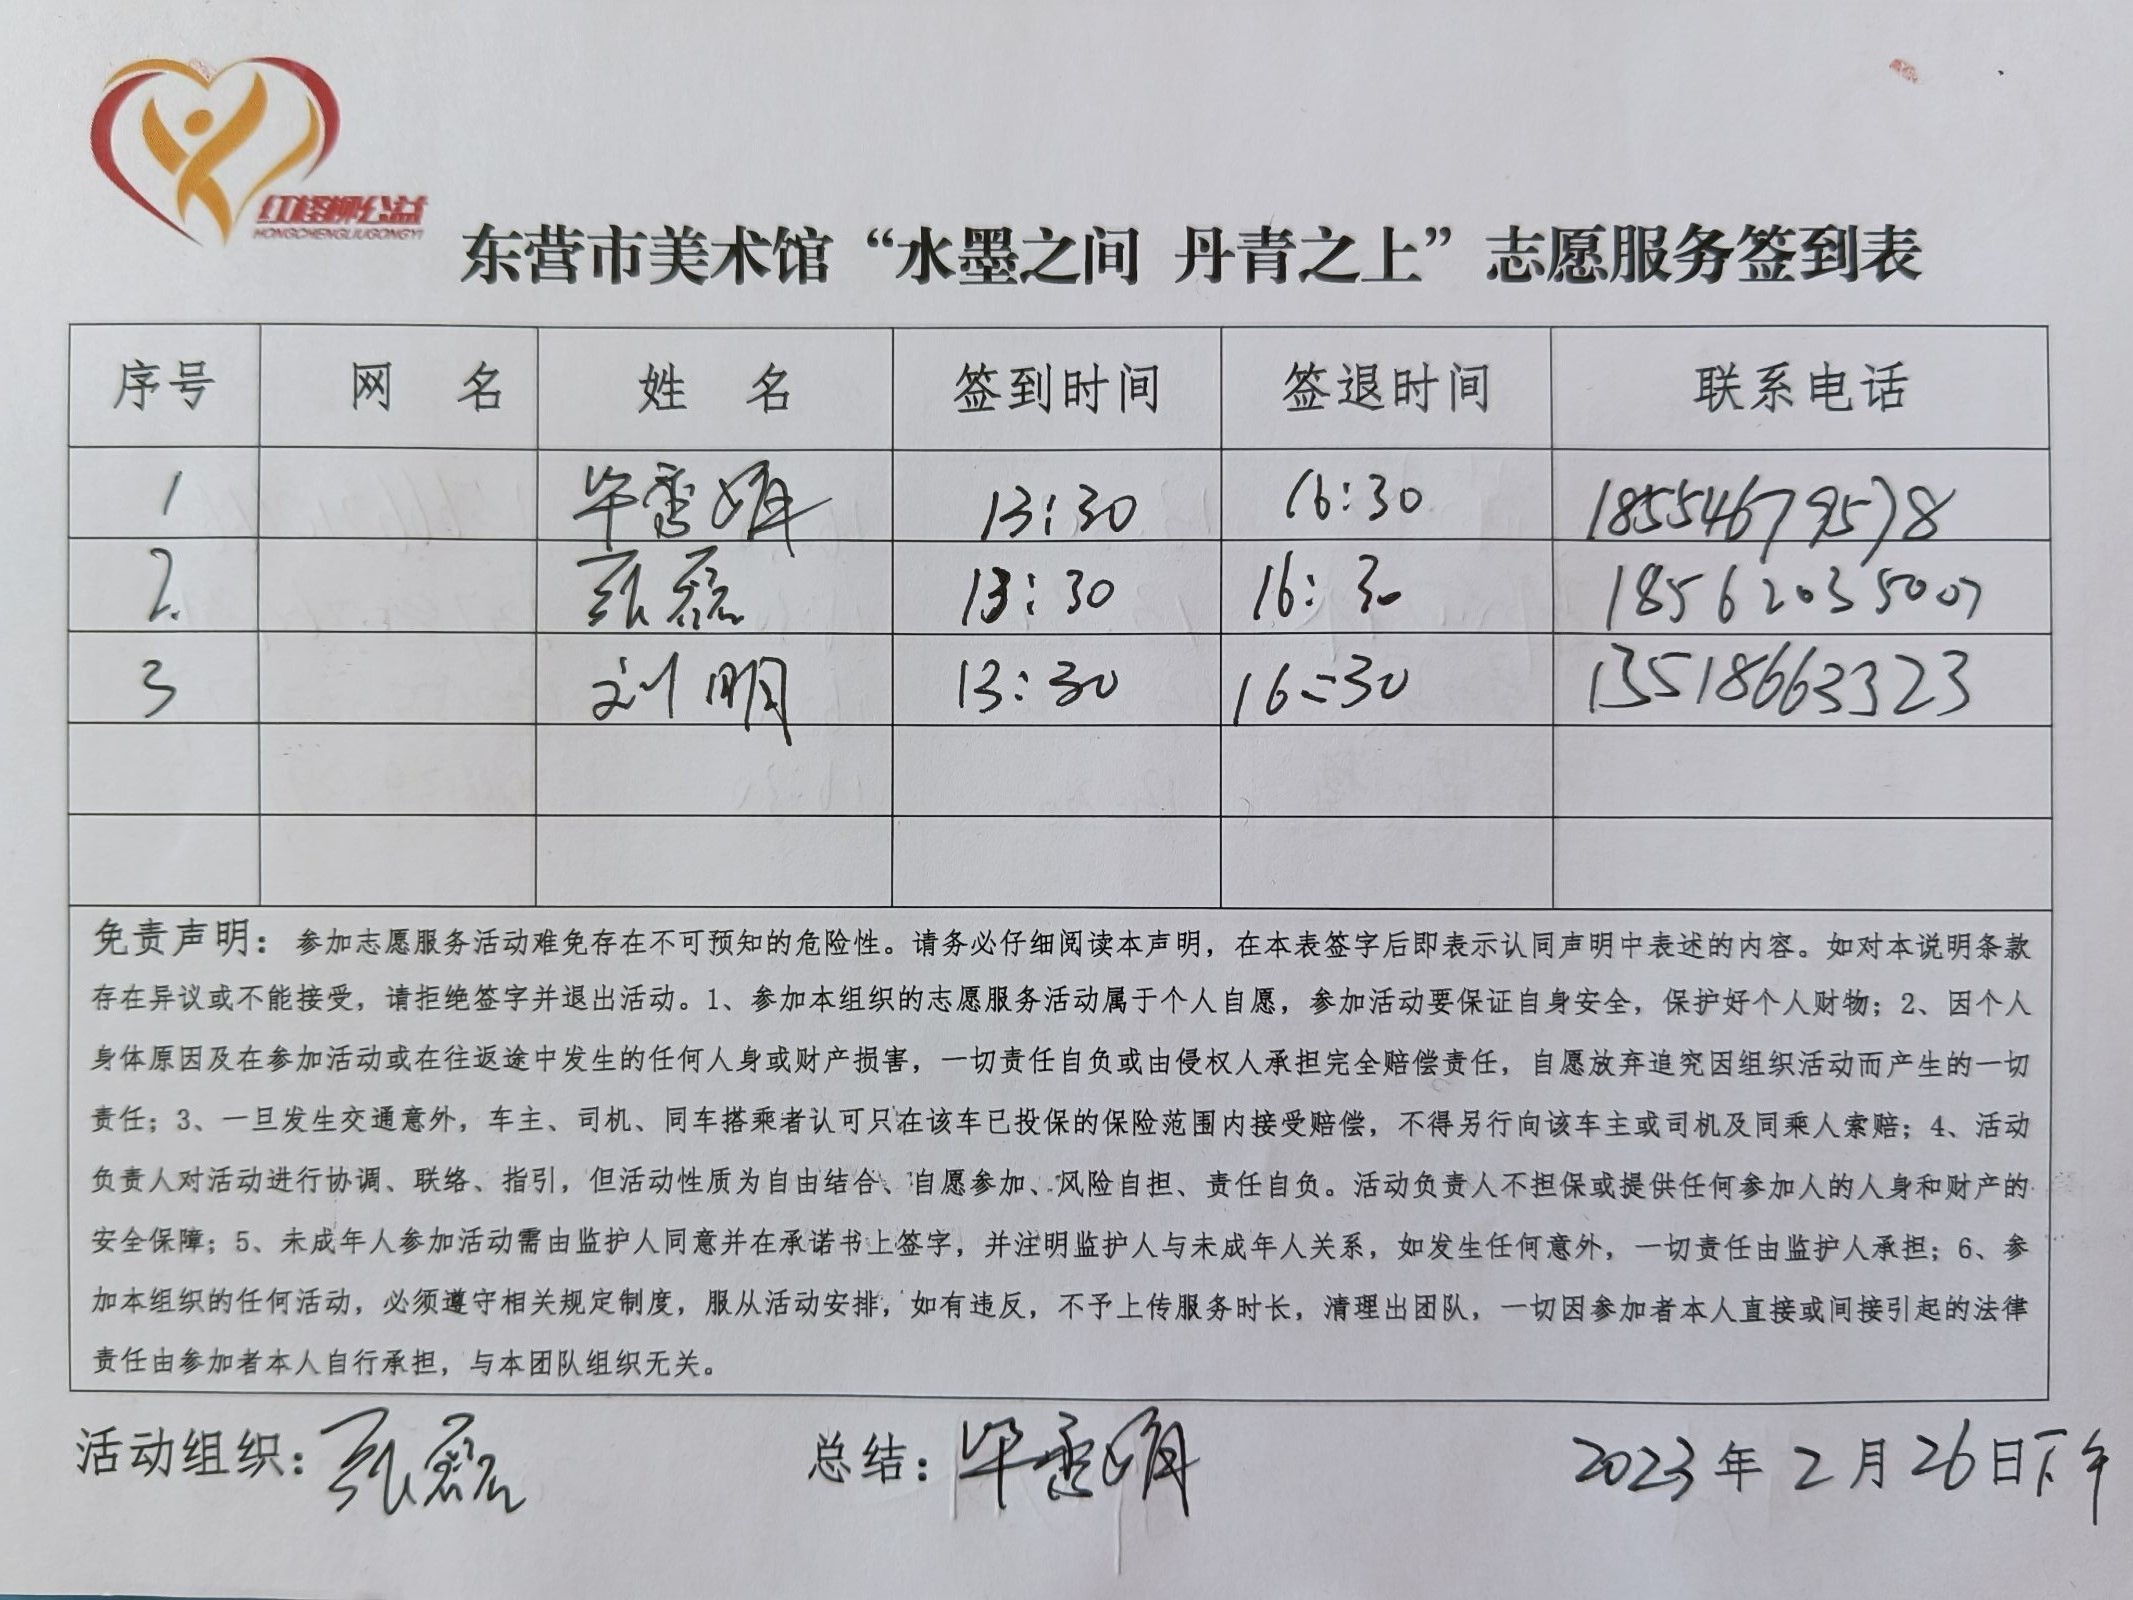 红柽柳公益
HONGCHENGLIUGONGYI
东营市美术馆“水墨之间 丹青之上”志愿服务签到表
序号 网 名 姓 名 签到时间 签退时间 联系电话
1 毕秀娟 13:30 16:30 18554679578
2. 张磊 13:30 16:30 18562035007
3 刘明 13:30 16:30 13518663323
免责声明：参加志愿服务活动难免存在不可预知的危险性。请务必仔细阅读本声明，在本表签字后即表示认同声明中表述的内容。如对本说明条款
存在异议或不能接受，请拒绝签字并退出活动。1、参加本组织的志愿服务活动属于个人自愿，参加活动要保证自身安全，保护好个人财物；2、因个人
身体原因及在参加活动或在往返途中发生的任何人身或财产损害，一切责任自负或由侵权人承担完全赔偿责任，自愿放弃追究因组织活动而产生的一切
责任；3、一旦发生交通意外，车主、司机、同车搭乘者认可只在该车已投保的保险范围内接受赔偿，不得另行向该车主或司机及同乘人索赔；4、活动
负责人对活动进行协调、联络、指引，但活动性质为自由结合、自愿参加、风险自担、责任自负。活动负责人不担保或提供任何参加人的人身和财产的
安全保障；5、未成年人参加活动需由监护人同意并在承诺书上签字，并注明监护人与未成年人关系，如发生任何意外，一切责任由监护人承担；6、参
加本组织的任何活动，必须遵守相关规定制度，服从活动安排，如有违反，不予上传服务时长，清理出团队，一切因参加者本人直接或间接引起的法律
责任由参加者本人自行承担，与本团队组织无关。
活动组织：张磊 总结：毕秀娟 2023年2月26日下午